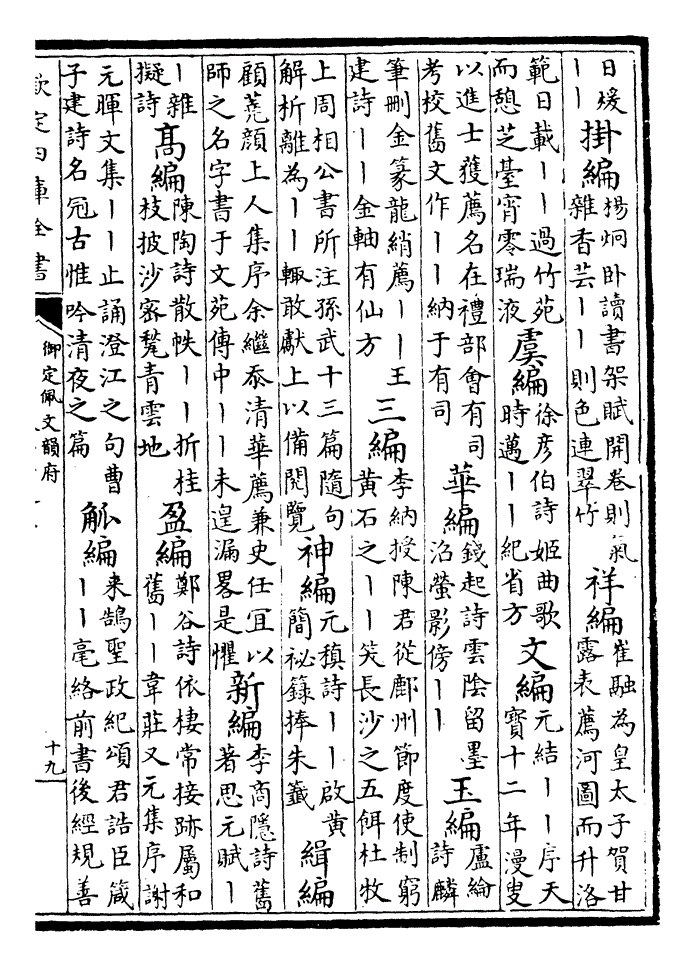 日煖
｜｜
掛編
楊炯卧讀書架賦開卷則氣
雜香芸｜｜則色連翠竹
祥編
崔融為皇太子賀甘
露表薦河圖而升洛
範日載｜｜過竹苑
而憩芝臺宵零瑞液
虞編
徐彦伯詩姬曲歌
時邁｜｜紀省方
文編
元結｜｜序天
寳十二年漫叟
以進士獲薦名在禮部會有司
考校舊文作｜｜納于有司
華編
錢起詩雲陰留墨
沼螢影傍｜｜
玉編
盧綸
詩麟
筆刪金篆龍綃薦｜｜王
建詩｜｜金軸有仙方
三編
李納授陳君從鄜州節度使制窮
黄石之｜｜笑長沙之五餌杜牧
上周相公書所注孫武十三篇隨句
解析離為｜｜輙敢獻上以備閱覽
神編
元稹詩｜｜啟黄
簡祕籙捧朱籤
緝編
顧蕘顔上人集序余繼忝清華薦兼史任冝以
師之名字書于文苑傳中｜｜未遑漏畧是懼
新編
李商隱詩舊
著思元賦｜
｜雜
擬詩
髙編
陳陶詩散帙｜｜折桂
枝披沙宻甃青雲地
盈編
鄭谷詩依棲常接跡屬和
舊｜｜韋莊又元集序謝
元暉文集｜｜止誦澄江之句曹
子建詩名冠古惟吟清夜之篇
觚編
来鵠聖政紀頌君誥臣箴
｜｜毫絡前書後經規善
欽定四庫全書
御定佩文韻府
十九